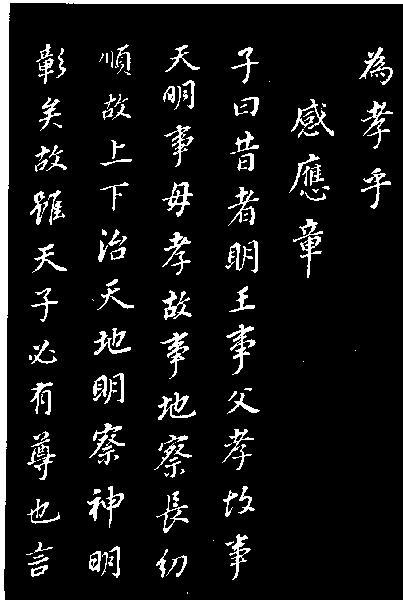 為孝乎
感應章
子曰昔者明王事父孝故事
天明事母孝故事地察長幼
順故上下治天地明察神明
彰矣故雖天子必有尊也言